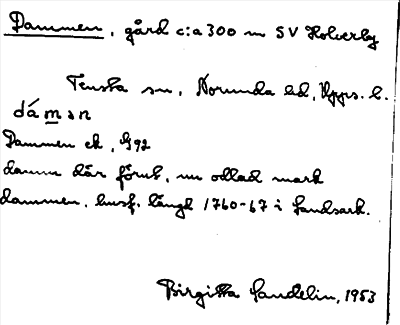 Dammen, gård c:a 300 m SV Holverby
Tensta sn, Norunda hd, Upps. l.
dámən
Dammen ek, G92
damm där förut, nu odlad mark
dammen, husf. längd 1760-67 i Landsark.
Birgitta Sandelin, 1953